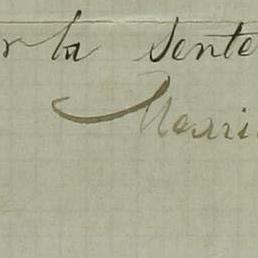 r la sente
Marri